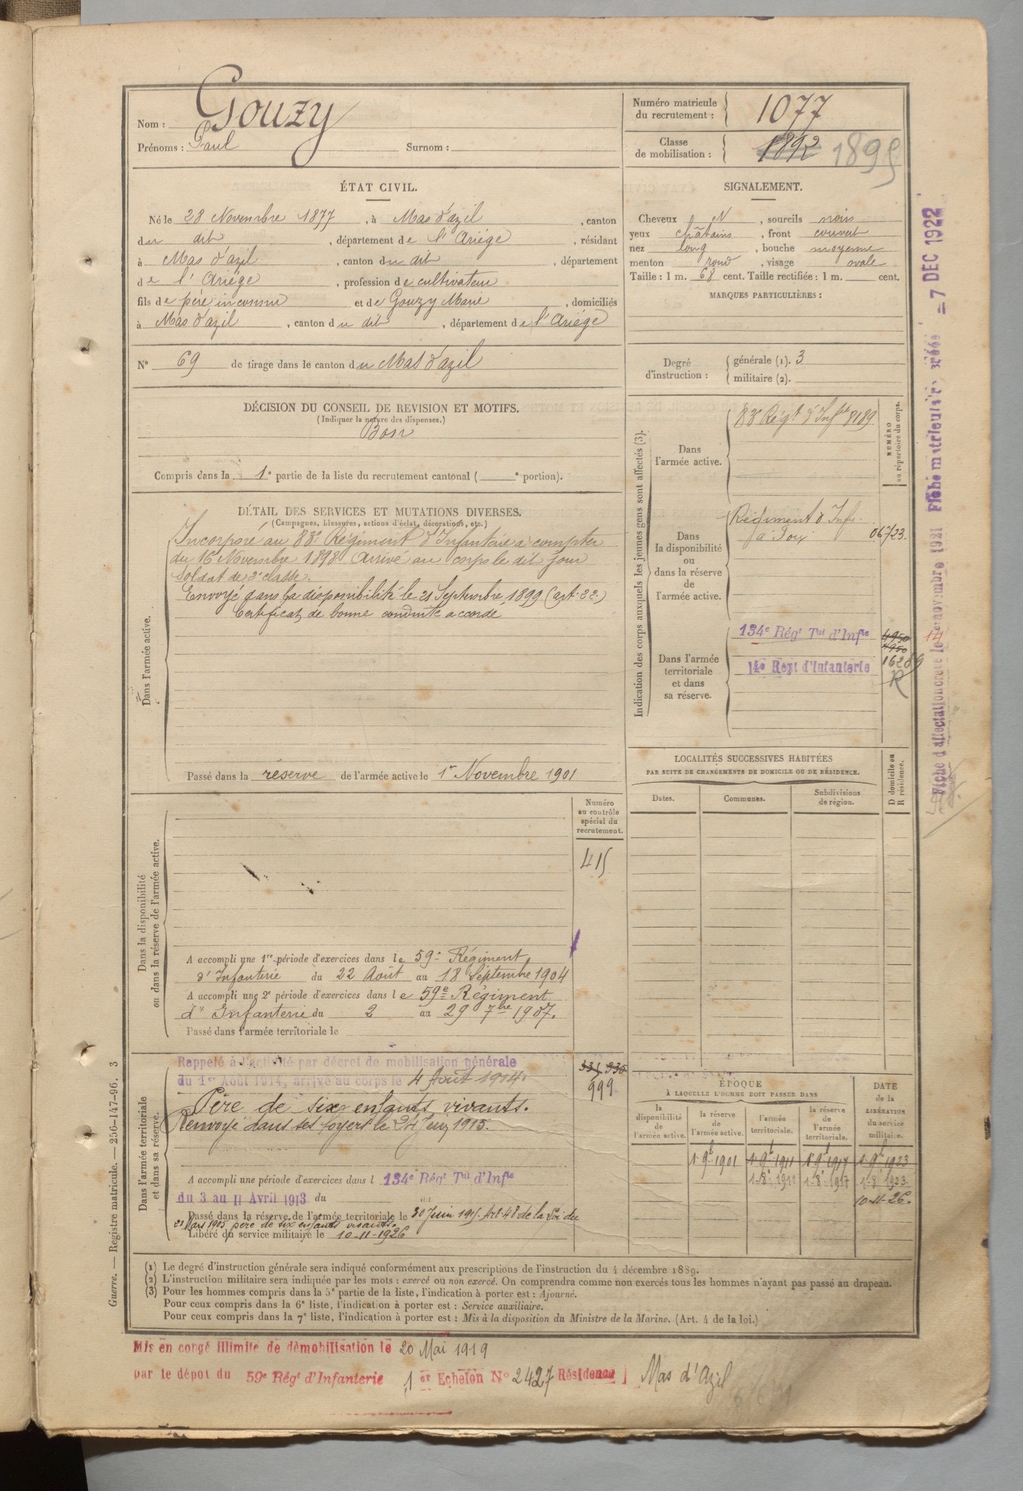 Nom : Gouzy
Prénoms : Paul Surnom :
Numéro matricule du recrutement : 1077
Classe de mobilisation : 1892 1895
ÉTAT CIVIL.
Né le 28 Novembre 1877, à Mas d'azil, canton
du dit, département de l'Ariège, résidant
à Mas d'azil, canton du dit, département
de l'Ariège, profession de cultivateur
fils de père inconnu et de Gouzy Marie, domiciliés
à Mas d'azil, canton du dit, département de l'Ariège
N° 69 de tirage dans le canton du Mas d'azil
SIGNALEMENT.
Cheveux N, sourcils noirs
yeux châtains, front couvert
nez long, bouche moyenne
menton rond, visage ovale
Taille : 1 m. 68 cent. Taille rectifiée : 1 m. cent.
MARQUES PARTICULIÈRES :
Degré d'instruction : générale (1). 3
militaire (2).
DÉCISION DU CONSEIL DE REVISION ET MOTIFS.
(Indiquer la nature des dispenses.)
Bon
Compris dans la 1e partie de la liste du recrutement cantonal ( e portion).
DÉTAIL DES SERVICES ET MUTATIONS DIVERSES.
(Campagnes, blessures, actions d'éclat, décorations, etc.)
Dans l'armée active.
Incorporé au 83e Régiment d'Infanterie à compter
du 16 Novembre 1898. Arrivé au corps le dit jour
Soldat de 2e classe.
Envoyé dans la disponibilité le 21 Septembre 1899 (art. 22)
Certificat de bonne conduite accordé
Passé dans la réserve de l'armée active le 1er Novembre 1901
Indication des corps auxquels les jeunes gens sont affectés (3).
NUMÉRO au répertoire du corps.
Dans l'armée active.
83e Régt d'Infie 8189
Dans la disponibilité ou dans la réserve de l'armée active.
Régiment d'Infie
à Foix 06723
Dans l'armée territoriale et dans sa réserve.
134e Régt Tal d'Infie
14e Regt d'Infanterie
16289
R
LOCALITÉS SUCCESSIVES HABITÉES
PAR SUITE DE CHANGEMENTS DE DOMICILE OU DE RÉSIDENCE.
Dates. Communes. Subdivisions de région. D domicile ou R résidence.
Numéro au contrôle spécial du recrutement.
415
Dans la disponibilité ou dans la réserve de l'armée active.
A accompli une 1re période d'exercices dans le 59e Régiment
d'Infanterie du 22 Août au 18 Septembre 1904
A accompli une 2e période d'exercices dans le 59e Régiment
d'Infanterie du 2 au 29 7bre 1907.
Passé dans l'armée territoriale le
Dans l'armée territoriale et dans sa réserve.
Rappelé à l'activité par décret de mobilisation générale
du 1er Août 1914, arrivé au corps le 4 Août 1914.
999
Père de six enfants vivants.
Renvoyé dans ses foyers le Juin 1915.
A accompli une période d'exercices dans l 134e Régt Tal d'Infie
du 3 au 11 Avril 1913 du
Passé dans la réserve de l'armée territoriale le 30 Juin 1915. Art 48 de la Loi du
21 Mars 1905 père de six enfants vivants.
Libéré du service militaire le 10-11-1926
ÉPOQUE
À LAQUELLE L'HOMME DOIT PASSER DANS
la disponibilité de l'armée active. la réserve de l'armée active. l'armée territoriale. la réserve de l'armée territoriale. DATE de la LIBÉRATION du service militaire.
1 9e 1901 1 9e 1911 1 9e 1917 1 9e 1923
10-11-26
(1) Le degré d'instruction générale sera indiqué conformément aux prescriptions de l'instruction du 4 décembre 1889.
(2) L'instruction militaire sera indiquée par les mots : exercé ou non exercé. On comprendra comme non exercés tous les hommes n'ayant pas passé au drapeau.
(3) Pour les hommes compris dans la 5e partie de la liste, l'indication à porter est : Ajourné.
Pour ceux compris dans la 6e liste, l'indication à porter est : Service auxiliaire.
Pour ceux compris dans la 7e liste, l'indication à porter est : Mis à la disposition du Ministre de la Marine. (Art. 4 de la loi.)
Mis en congé illimité de démobilisation le 20 Mai 1919
par le dépôt du 59e Régt d'Infanterie 1er Echelon N° 2427 Résidence Mas d'Azil
Guerre. — Registre matricule. — 256-147-96. 3
= 7 DEC 1922